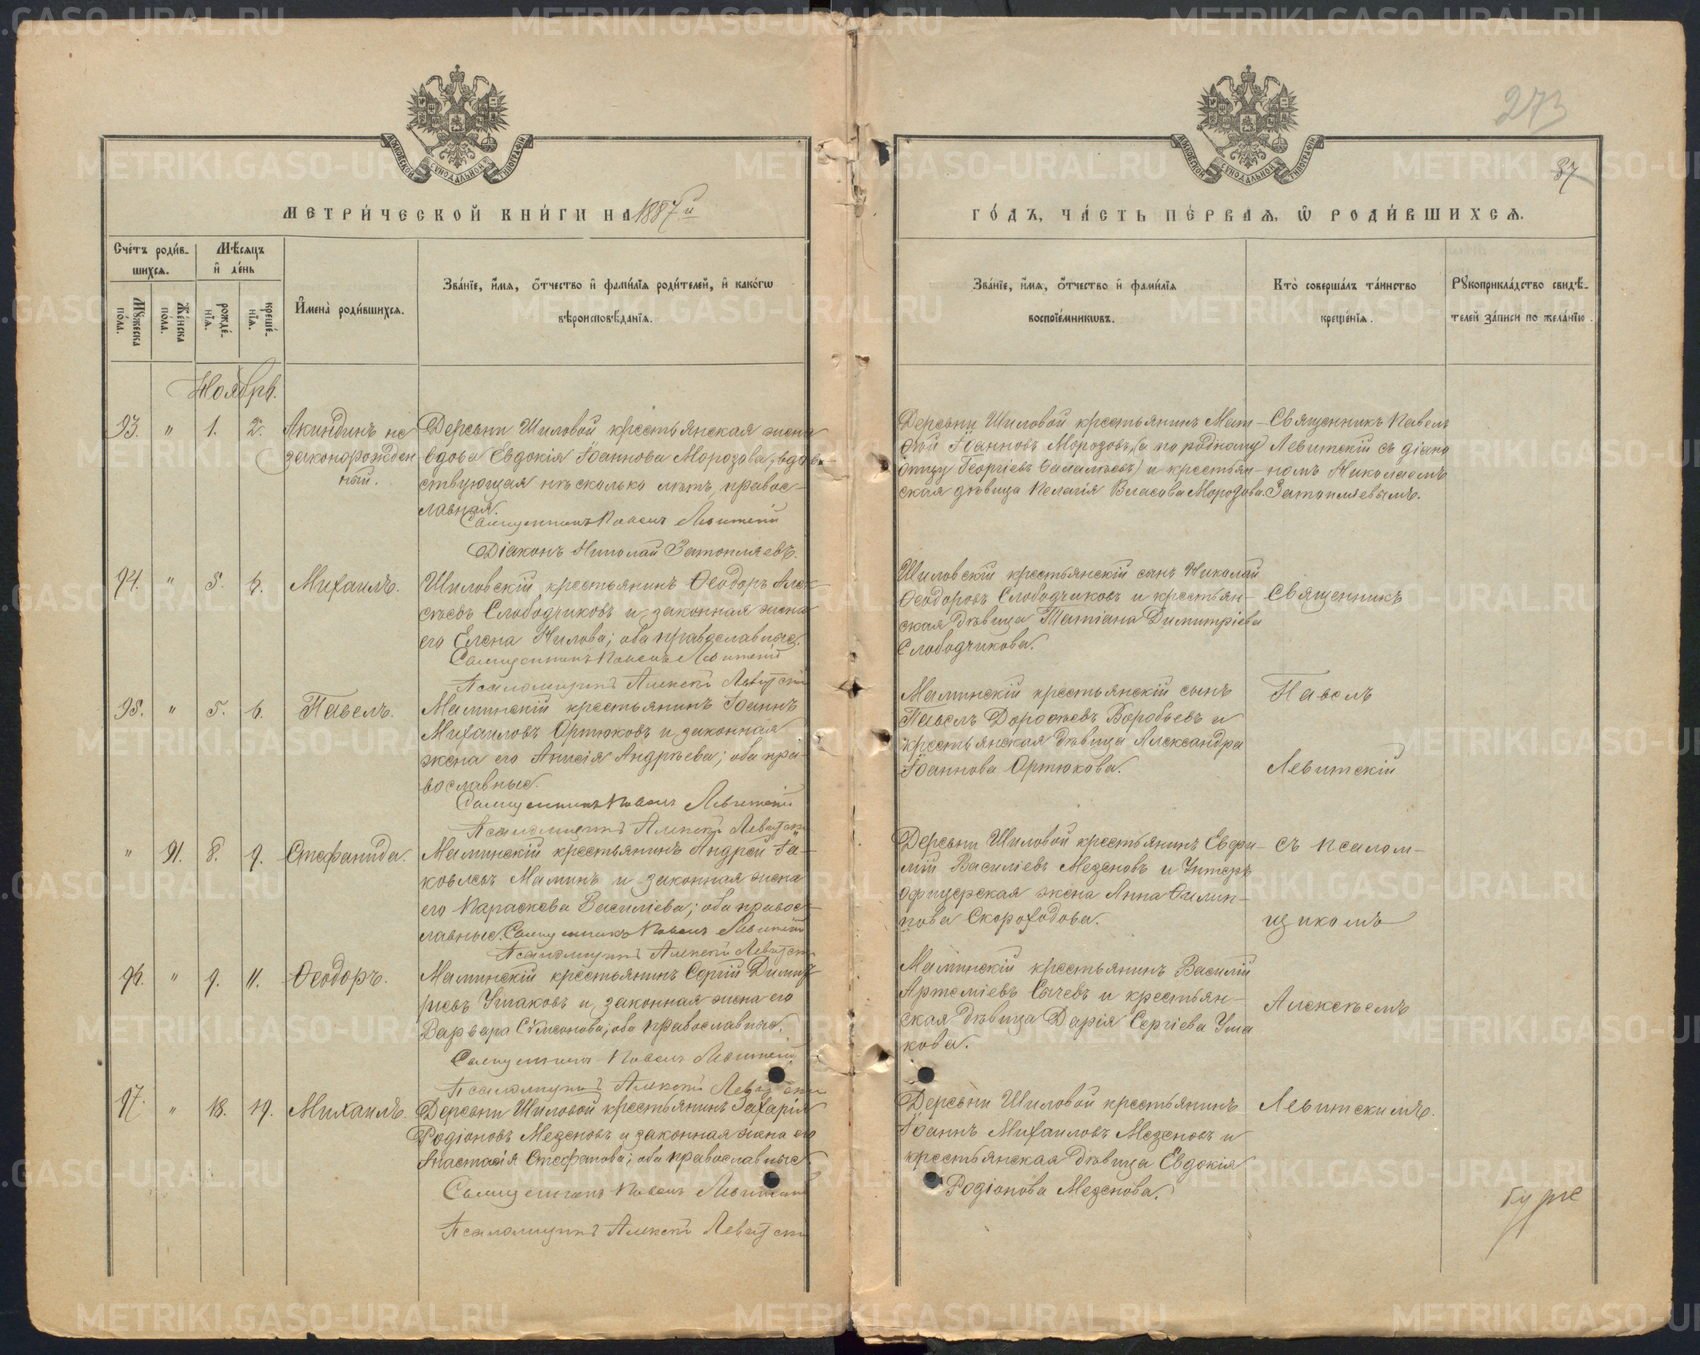 METRIKI.GASO-URAL.RU
273
87
МЕТРИ́ЧЕСКОЙ КНИ́ГИ НА 1887й
ГО́ДЪ, ЧА́СТЬ ПЕ́РВАЯ, Ѿ РОДИ́ВШИХСЯ.
Сче́тъ роди́в-
шихся.
Мѣ́сяцъ
и҆ де́нь
Мꙋ́жеска
по́ла.
Же́нска
по́ла.
рожде́-
нїя.
креще́-
нїя.
И҆мена̀ роди́вшихся.
Зва́нїе, и҆́мя, ѻ҆́тчество и҆ фами́лїя роди́телей, и҆ како́гѡ
вѣроисповѣ́данїя.
Зва́нїе, и҆́мя, ѻ҆́тчество и҆ фами́лїя
воспрїе́мникѡвъ.
Кто̀ соверша́лъ та́инство
креще́нїя.
Рꙋкоприкла́дство свидѣ́-
телей за́писи по жела́нїю.
Ноябрь.
93. " 1. 2. Акиндинъ не
законорожден
ный.
Деревни Шиловой крестьянская жена
вдова Евдокія Іоаннова Морозова, вдов-
ствующая нѣсколько лѣтъ, правос-
лавная.
Священникъ Павелъ Левитскій
Діаконъ Николай Затопляевъ.
Деревни Шиловой крестьянинъ Мат-
ѳей Іоанновъ Морозовъ (а по родному
отцу Георгіевъ) и крестьян-
ская дѣвица Пелагія Власова Морозова.
Священникъ Павелъ
Левитскій съ діако
номъ Николаемъ
Затопляевымъ.
94. " 5. 6. Михаилъ.
Шиловскій крестьянинъ Ѳеодоръ Алек-
сѣевъ Слободчиковъ и законная жена
его Елена Нилова; оба православные.
Священникъ Павелъ Левитскій
Псаломщикъ Алексѣй Левитскій
Шиловскій крестьянскій сынъ Николай
Ѳеодоровъ Слободчиковъ и крестьян-
ская дѣвица Татіана Димитріева
Слободчикова.
Священникъ
95. " 5. 6. Павелъ.
Маминскій крестьянинъ Іоаннъ
Михаиловъ Ортюковъ и законная
жена его Анисія Андрѣева; оба пра-
вославные.
Священникъ Павелъ Левитскій
Псаломщикъ Алексѣй Левитскій
Маминскій крестьянскій сынъ
Павелъ Дороѳеевъ Воробьевъ и
крестьянская дѣвица Александра
Іоаннова Ортюкова.
Павелъ
Левитскій
" 91. 8. 9. Стефанида.
Маминскій крестьянинъ Андрей Іа-
ковлевъ Маминъ и законная жена
его Параскева Василіева; оба правос-
лавные. Священникъ Павелъ Левитскій
Псаломщикъ Алексѣй Левитскій
Деревни Шиловой крестьянинъ Евфи-
мій Василіевъ Мезеновъ и Унтеръ
офицерская жена Анна Филип-
пова Скороходова.
съ псалом-
щикомъ
96. " 9. 11. Ѳеодоръ.
Маминскій крестьянинъ Сергій Димит-
ріевъ Ушаковъ и законная жена его
Варвара Сѵмеонова; оба православные.
Священникъ Павелъ Левитскій
Псаломщикъ Алексѣй Левитскій
Маминскій крестьянинъ Василій
Артеміевъ Сычевъ и крестьян-
ская дѣвица Дарія Сергіева Уша
кова.
Алексѣемъ
97. " 18. 19. Михаилъ.
Деревни Шиловой крестьянинъ Захарія
Родіоновъ Мезеновъ и законная жена его
Анастасія Стефанова; оба православные.
Священникъ Павелъ Левитскій
Псаломщикъ Алексѣй Левитскій
Деревни Шиловой крестьянинъ
Іоаннъ Михаиловъ Мезеновъ и
крестьянская дѣвица Евдокія
Родіонова Мезенова.
Левитскимъ.